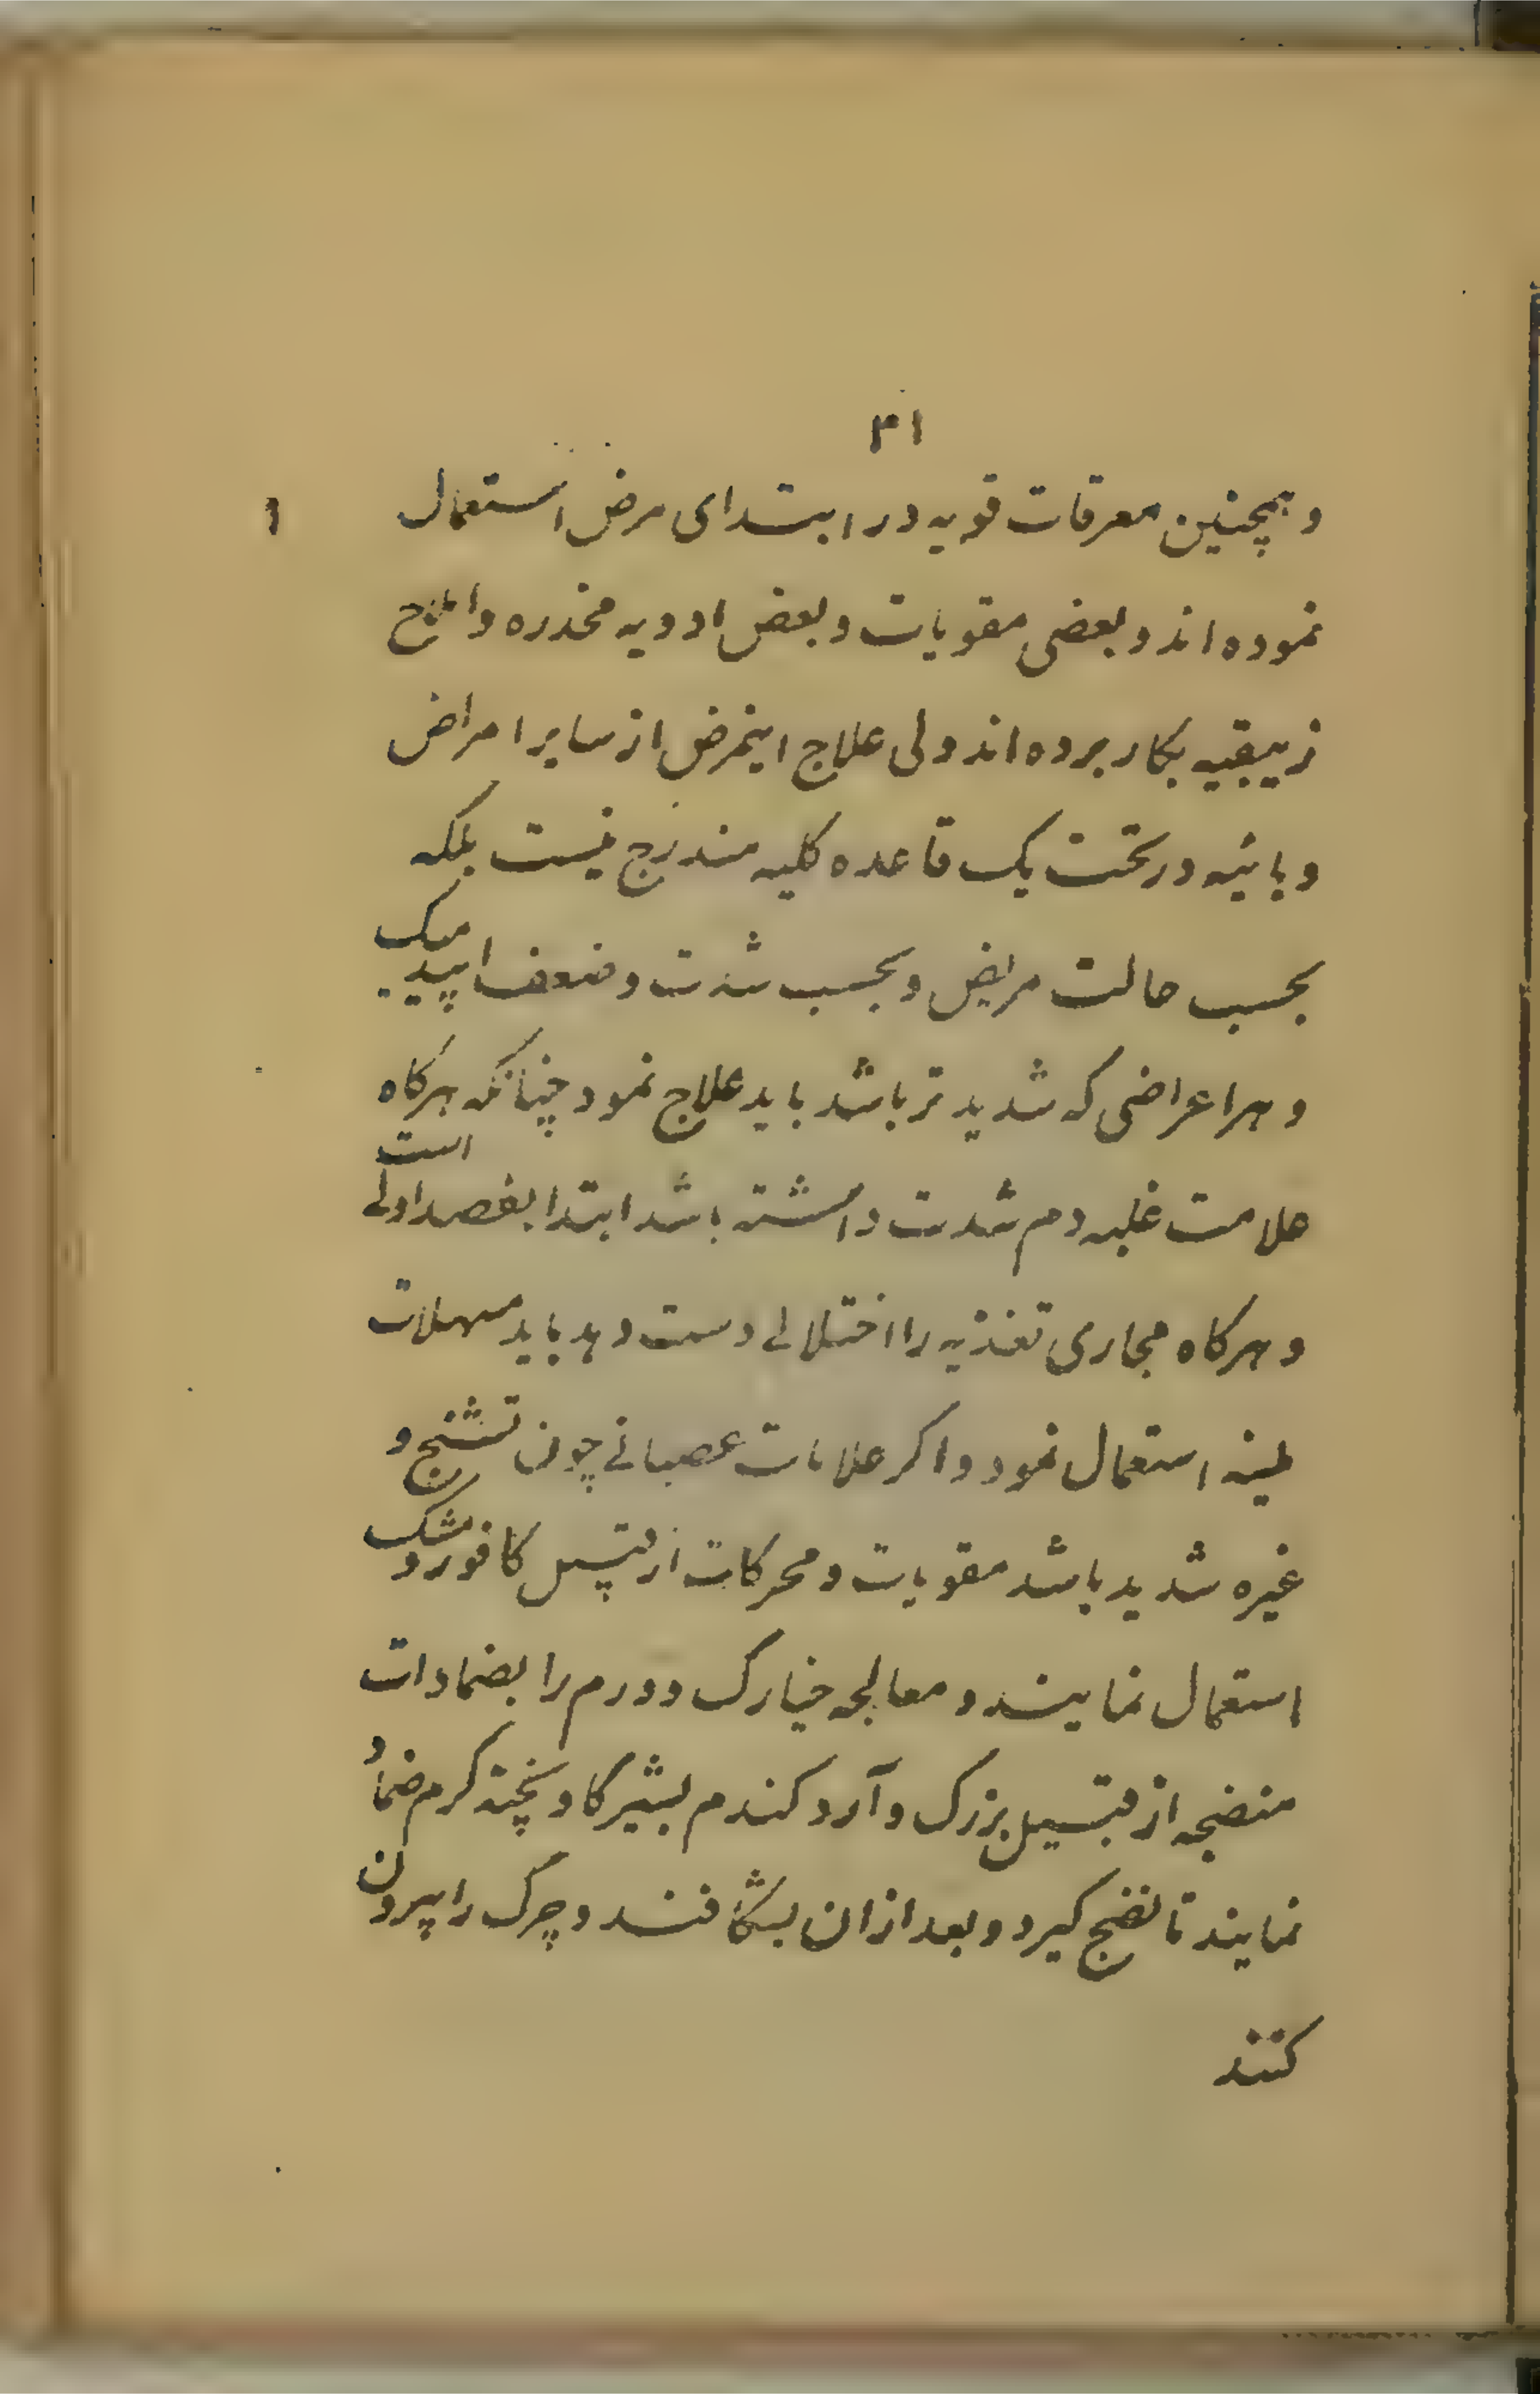 ۳۱
وهمچنین معرقات قویه در ابتدای مرض استعمال
نموده اند و بعضی مقویات و بعض ادویه مخدره و املاح
زیبقیه بکار برده اند ولی علاج اینمرض از سایر امراض
وبائیه در تحت یک قاعده کلیه مندرج نیست بلکه
بحسب حالت مریض و بحسب شدت و ضعف اپیدمیک
و هر اعراضی که شدید تر باشد باید علاج نمود چنانکه هرکاه
علامت غلبه دم شدت داشته باشد ابتدا بفصد اولی است
و هرکاه مجاری تغذیه را اختلالی دست دهد باید مسهلات
لینه استعمال نمود و اکر علامات عصبانی چون تشنج و
غیره شدید باشد مقویات و محرکات از قبیل کافور و مشک
استعمال نمایند و معالجه خیارک و ورم را بضمادات
منضجه از قبیل بزرک و آرد کندم بشیر کاو پخته کرم ضماد
نمایند تا نضج کیرد و بعد از ان بشکافند و چرک را بیرون
کنند